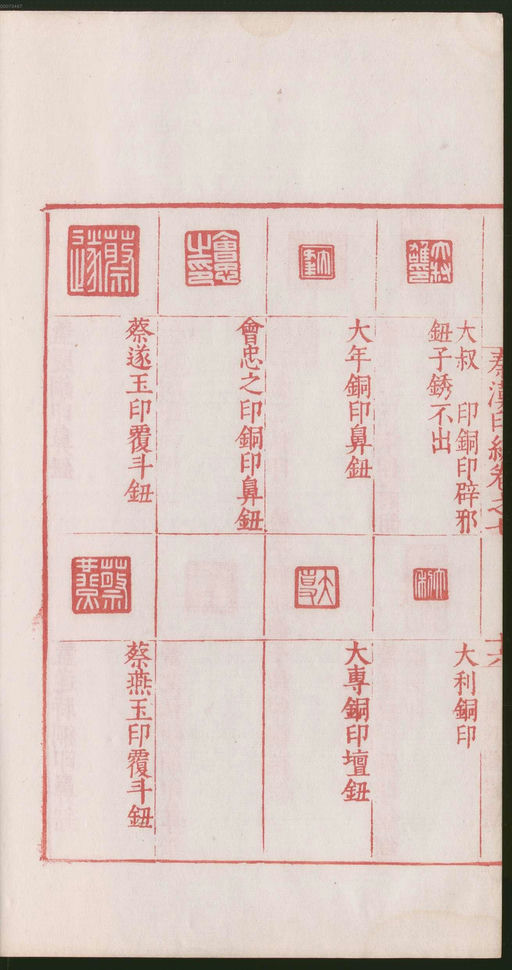 秦漢印統卷之七
十六
大叔　印銅印辟邪
鈕子銹不出
大年銅印鼻鈕
會忠之印銅印鼻鈕
蔡遂玉印覆斗鈕
大利銅印
大專銅印壇鈕
蔡燕玉印覆斗鈕
大利
蔡遂
蔡燕